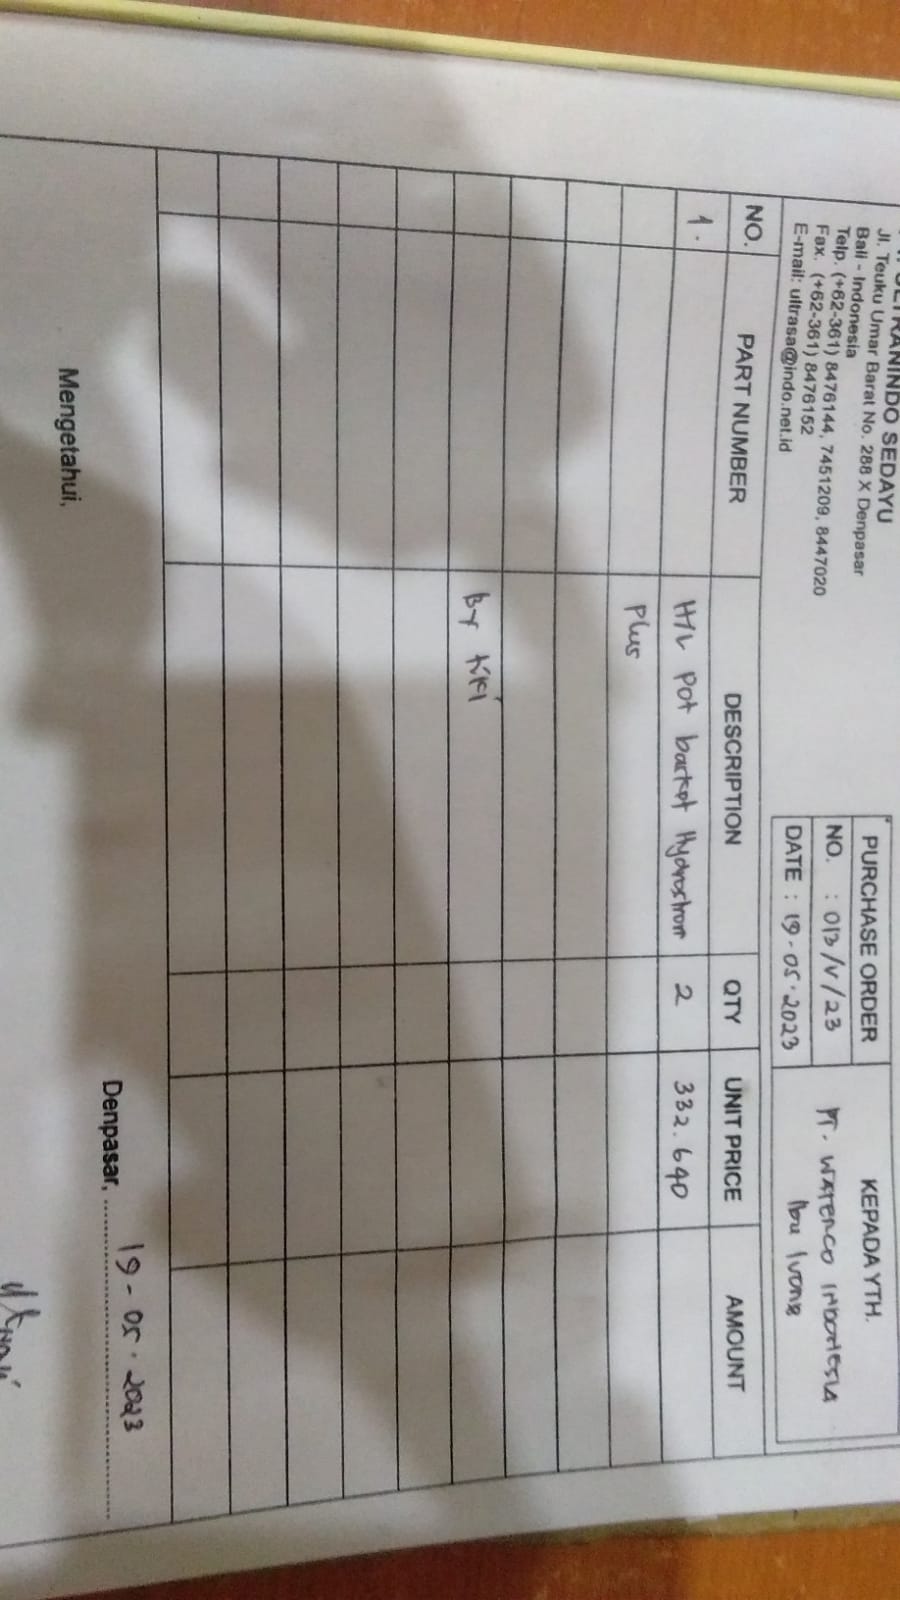 ULTRANINDO SEDAYU
Jl. Teuku Umar Barat No. 288 X Denpasar
Bali - Indonesia
Telp. (+62-361) 8476144, 7451209, 8447020
Fax. (+62-361) 8476152
E-mail: ultrasa@indo.net.id
PURCHASE ORDER
NO. : 013/V/23
DATE : 19-05-2023
KEPADA YTH.
PT. WATERCO INDONESIA
Ibu Ivone
NO. PART NUMBER DESCRIPTION QTY UNIT PRICE AMOUNT
1. Pot basket Hydrostrom 2 332.640
Plus
By
Mengetahui,
Denpasar, 19-05-2023